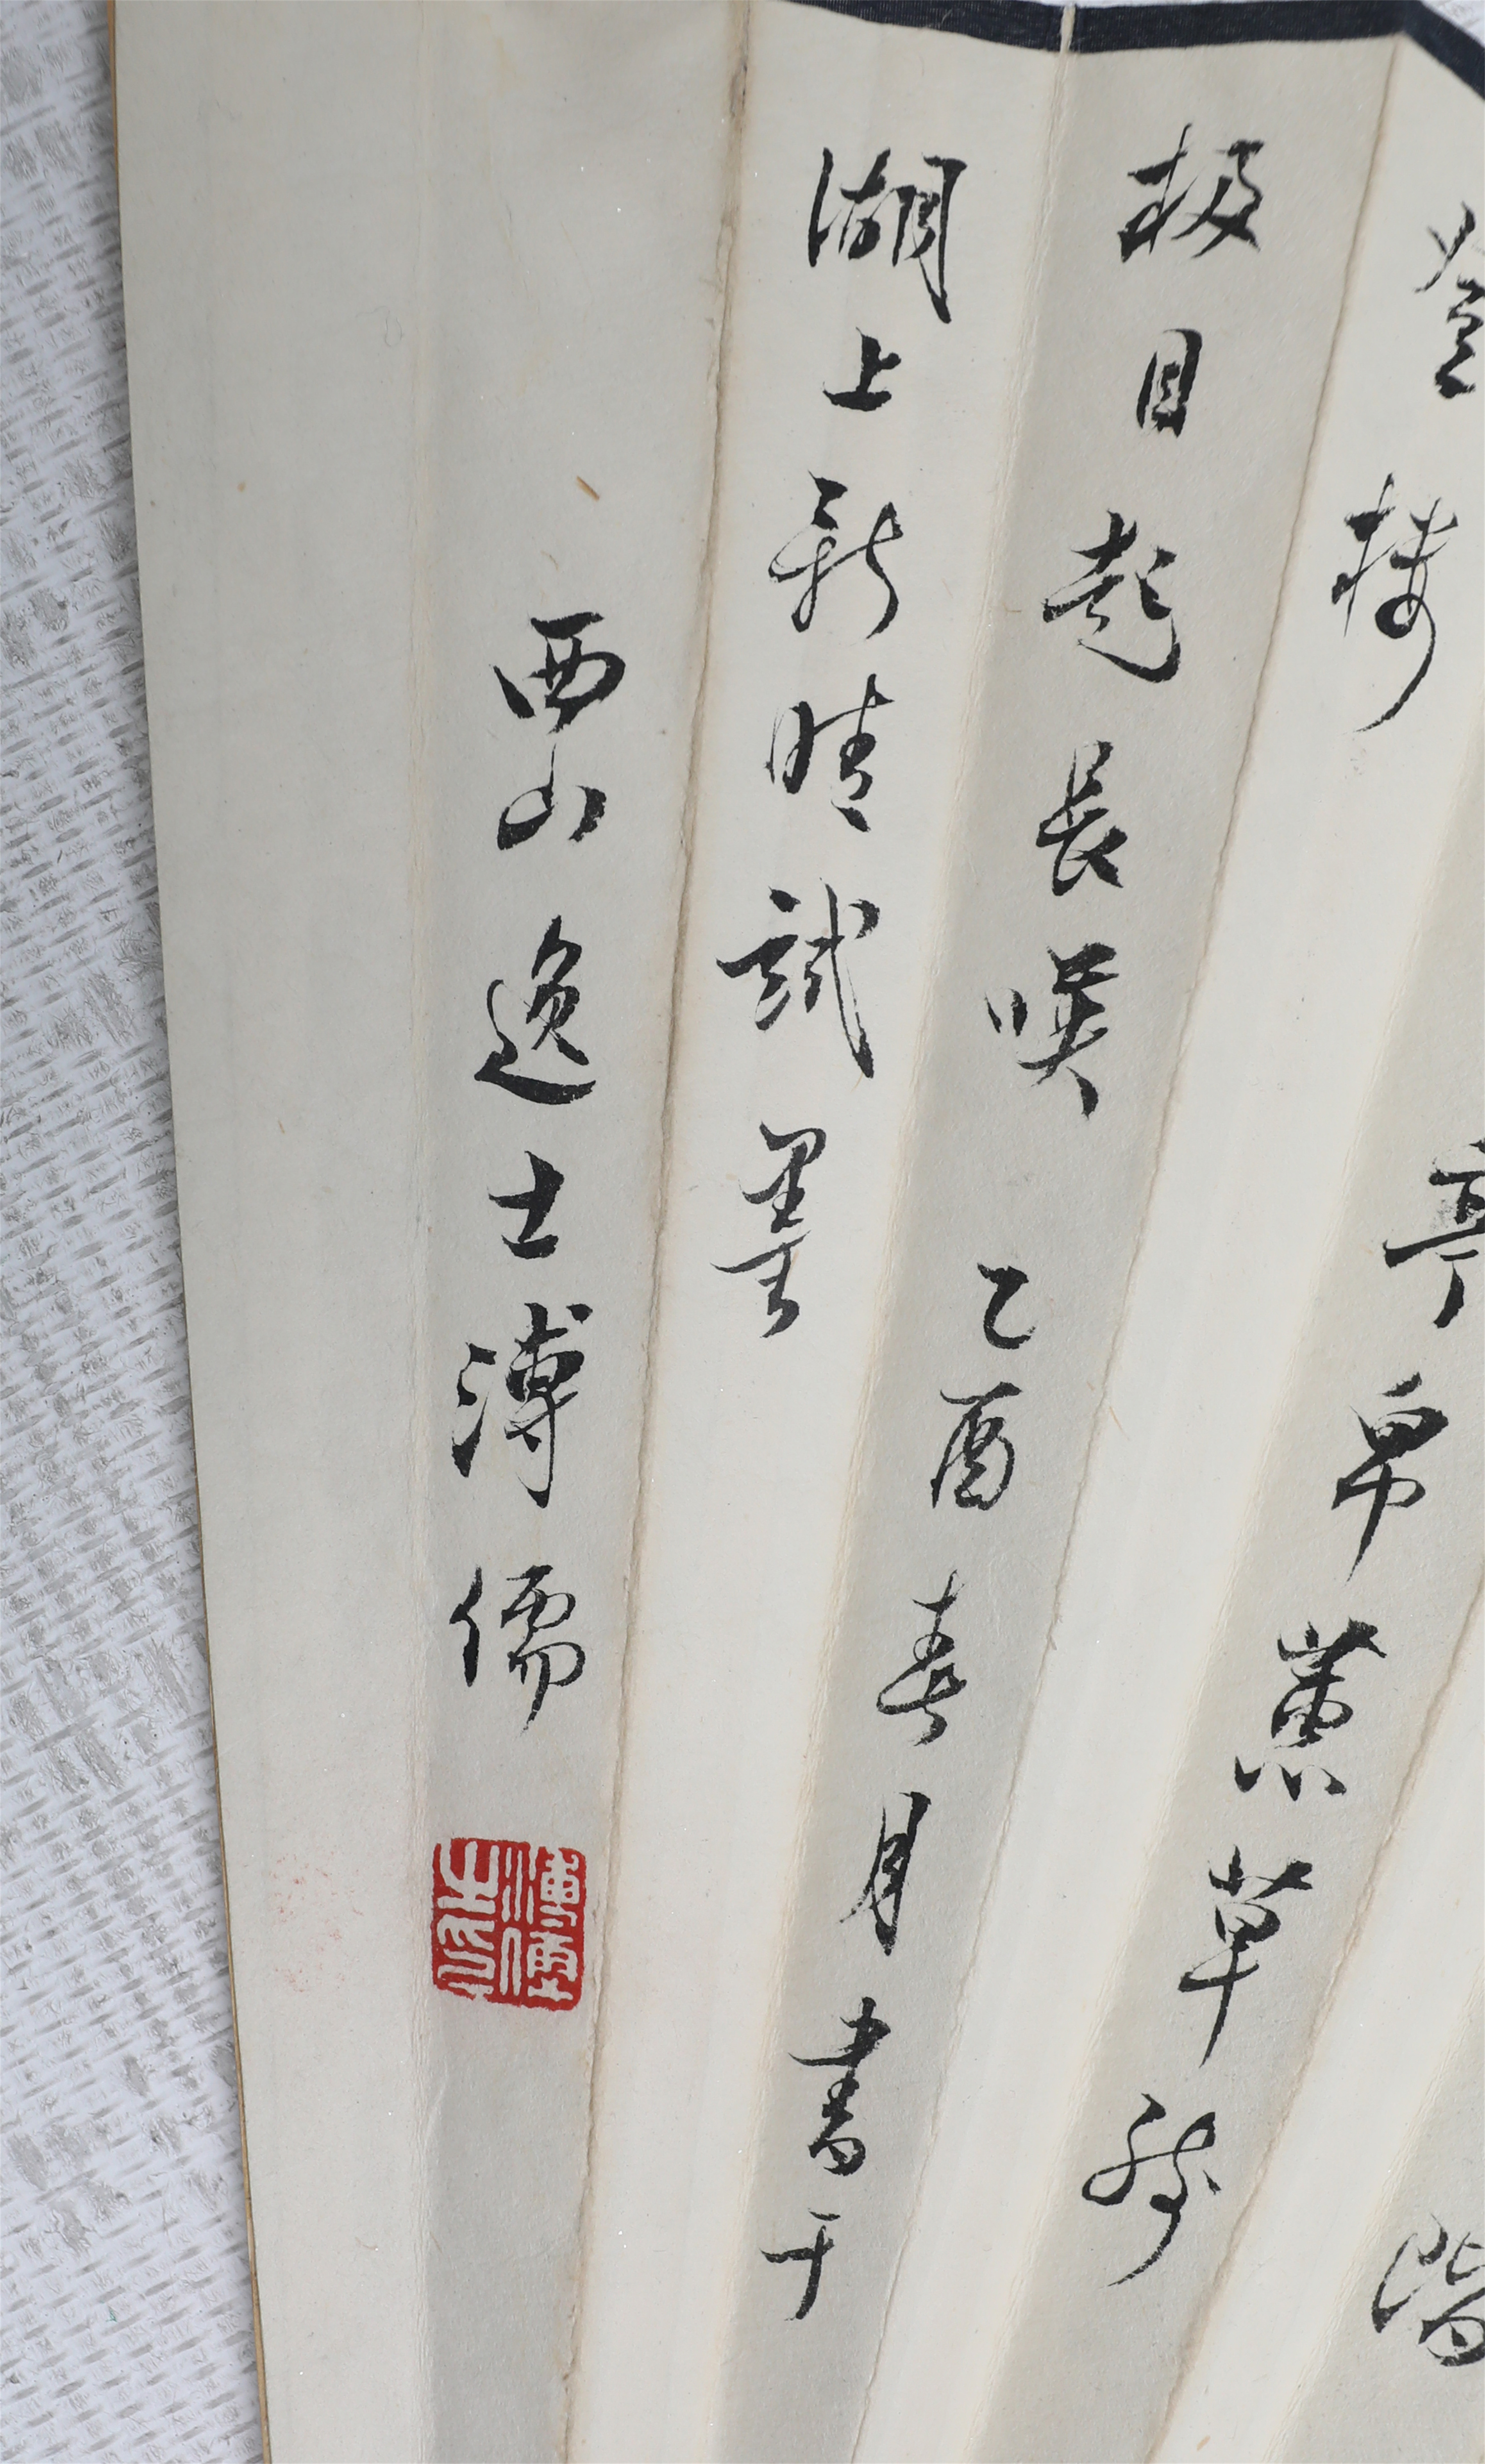 階
亭皋蕙草殘
登樓
極目起長嘆 乙酉春月書于
湖上新晴試墨
西山逸士溥儒
溥儒之印